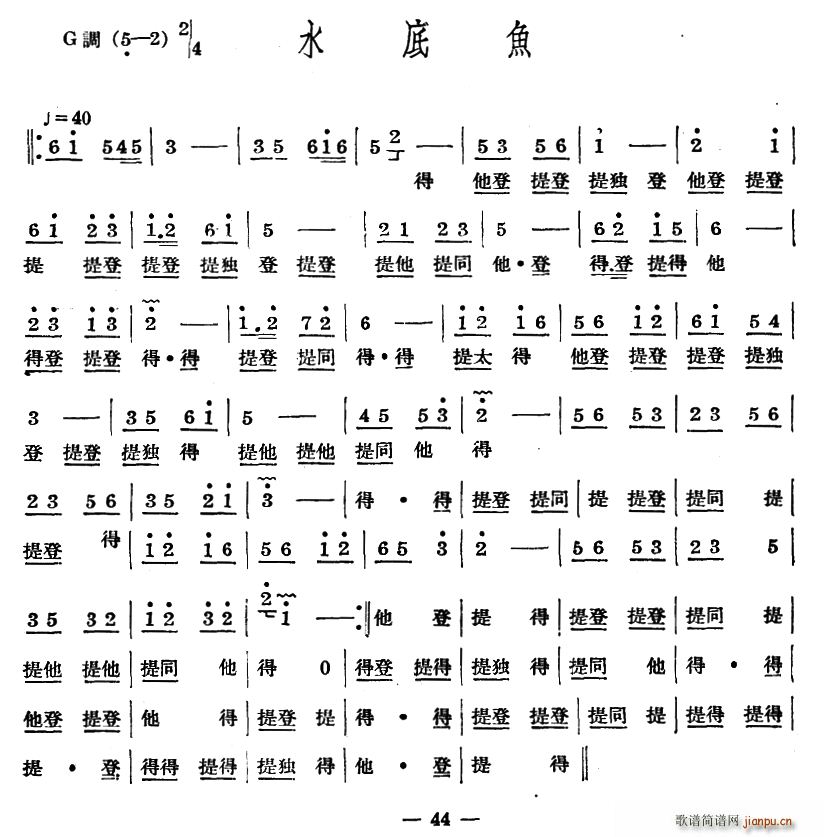 G調 (5—2) 2/4 水底魚
♩=40
6 1 545 | 3 — | 35 616 | 5 2 | 53 56 | 1 — | 2 1 |
得 他登 提登 提独 登 他登 提登
61 23 | 1.2 61 | 5 — | 21 23 | 5 — | 62 15 | 6 — |
提 提登 提登 提独 登 提登 提他 提同 他·登 得.登 提得 他
23 13 | 2 — | 1.2 72 | 6 — | 12 16 | 56 12 | 61 54 |
得登 提登 得·得 提登 提同 得·得 提太 得 他登 提登 提登 提独
3 — | 35 61 | 5 — | 45 53 | 2 — | 56 53 | 23 56 |
登 提登 提独 得 提他 提他 提同 他 得
23 56 | 35 21 | 3 — | 得·得 | 提登 提同 | 提 提登 | 提同 提 |
提登 得 | 12 16 | 56 12 | 65 3 | 2 — | 56 53 | 23 5 |
35 32 | 12 32 | 2 1 — :‖ 他 登 | 提 得 | 提登 提登 | 提同 提 |
提他 提他 | 提同 他 | 得 0 | 得登 提得 | 提独 得 | 提同 他 | 得·得 |
他登 提登 | 他 得 | 提登 提 | 得·得 | 提登 提登 | 提同 提 | 提得 提得 |
提·登 | 得得 提得 | 提独 得 | 他·登 | 提 得 ‖
— 44 —
歌谱简谱网 jianpu.cn